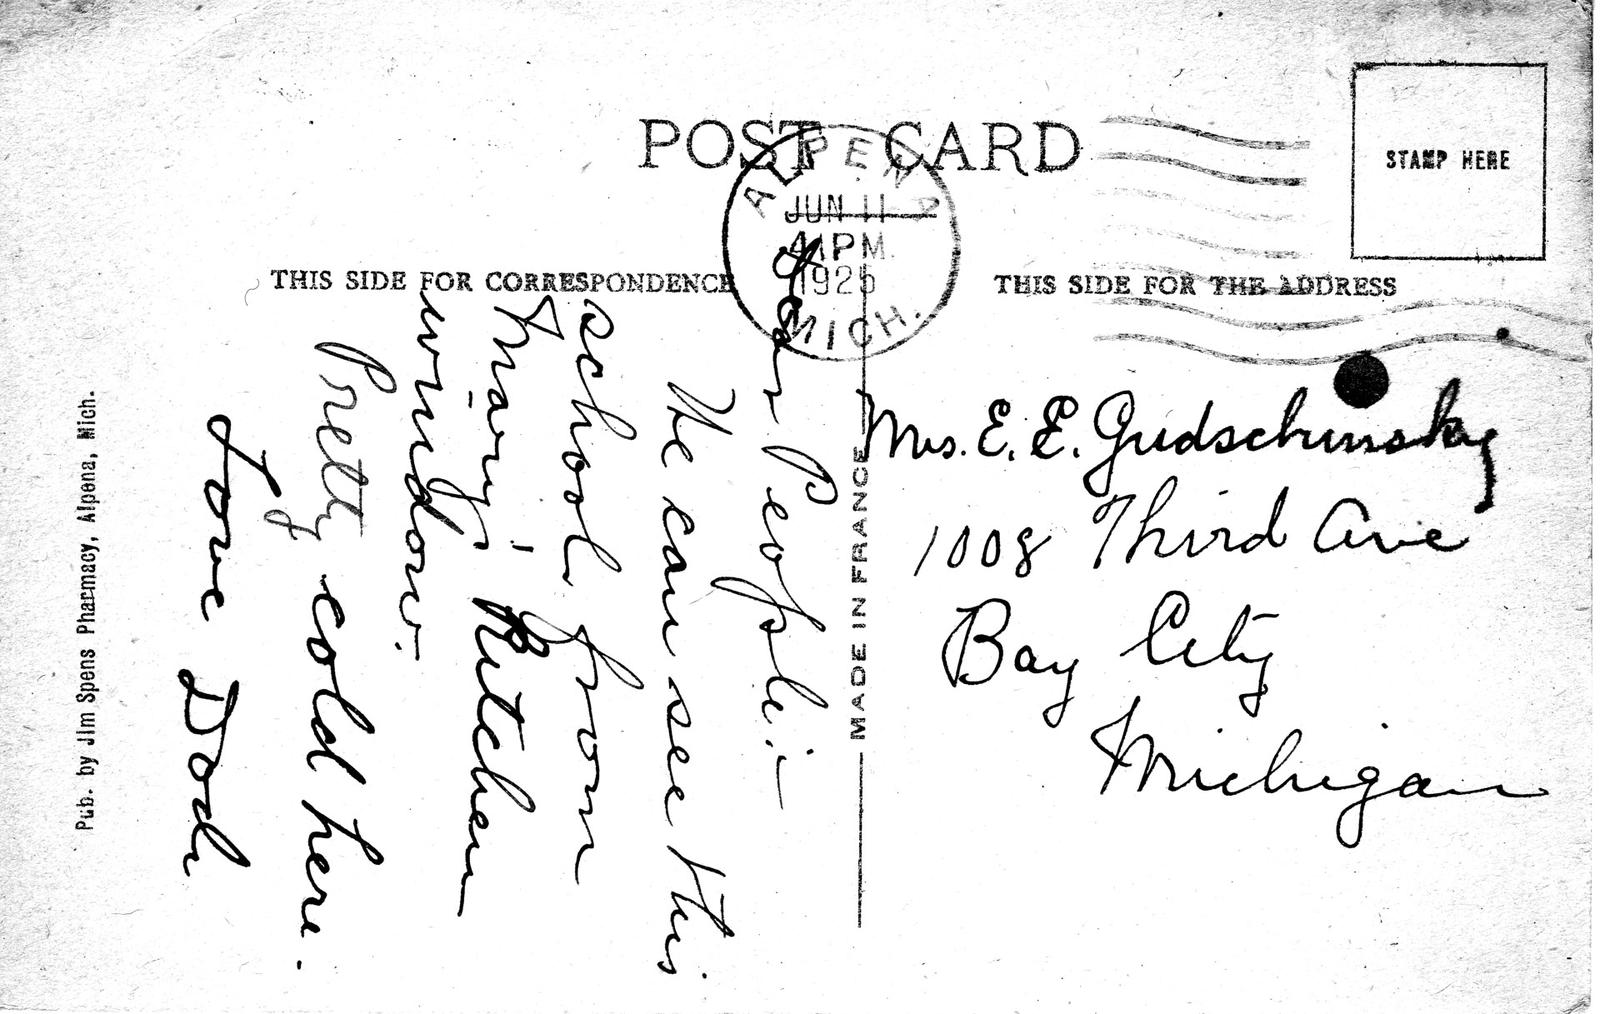 POST CARD
ALPENA
JUN 11
4 PM
1925
MICH.
STAMP HERE
THIS SIDE FOR CORRESPONDENCE
THIS SIDE FOR THE ADDRESS
Dear People:—
We can see this
school from
Mary's Kitchen
window.
Pretty cold here.
Love Dad
MADE IN FRANCE
Mrs. E. E. Gudschinsky
1008 Third Ave
Bay City
Michigan
Pub. by Jim Spens Pharmacy, Alpena, Mich.